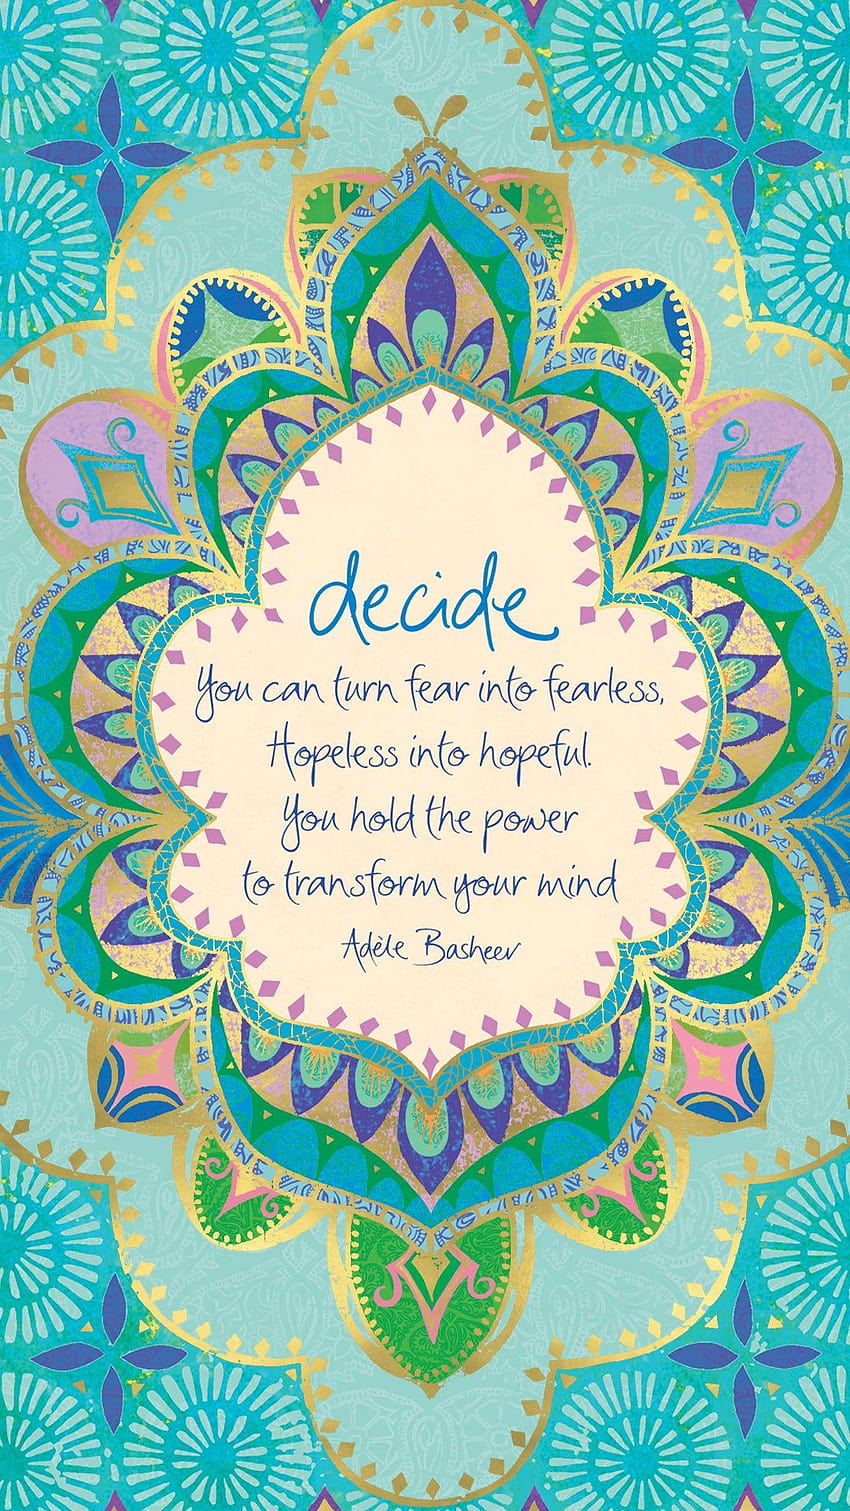 decide
You can turn fear into fearless,
Hopeless into hopeful.
You hold the power
to transform your mind
Adèle Basheer